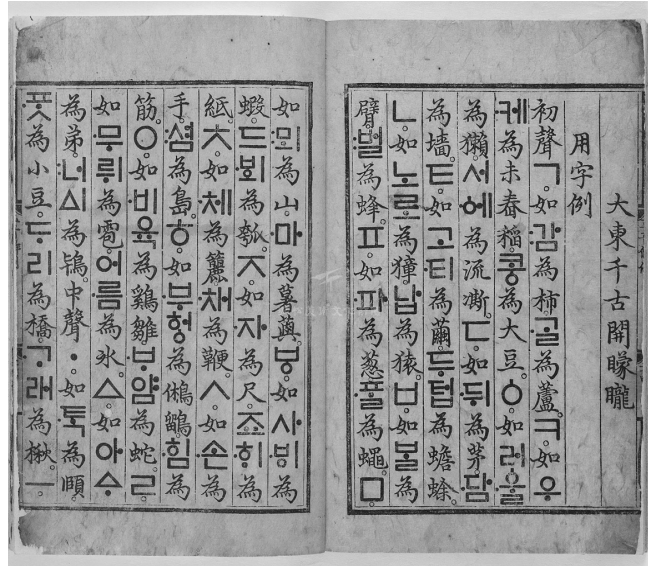 大東千古開矇矓
用字例
初聲ㄱ。如감為柿。ᄀᆞᆯ為蘆。ㅋ。如우
케為未舂稻。콩為大豆。ㆁ。如러ᅌᅮᆯ
為獺。서ᅌᅦ為流凘。ㄷ。如뒤為茅。담
為墻。ㅌ。如고티為繭。두텁為蟾蜍。
ㄴ。如노로為獐。납為猿。ㅂ。如ᄇᆞᆯ為
臂。벌為蜂。ㅍ。如파為葱。ᄑᆞᆯ為蠅。ㅁ。
如뫼為山。마為薯藇。ㅸ。如사ᄫᅵ為
蝦。드ᄫᅴ為瓠。ㅈ。如자為尺。죠ᄒᆡ為
紙。ㅊ。如체為籭。채為鞭。ㅅ。如손為
手。셤為島。ㅎ。如부헝為鵂鶹。힘為
筋。ㅇ。如비육為鷄雛。ᄇᆞ얌為蛇。ㄹ。
如무뤼為雹。어름為氷。ㅿ。如아ᅀᆞ
為弟。너ᅀᅵ為鴇。中聲ㆍ。如ᄐᆞᆨ為頤。
ᄑᆞᆺ為小豆。ᄃᆞ리為橋。ᄀᆞ래為楸。ㅡ。